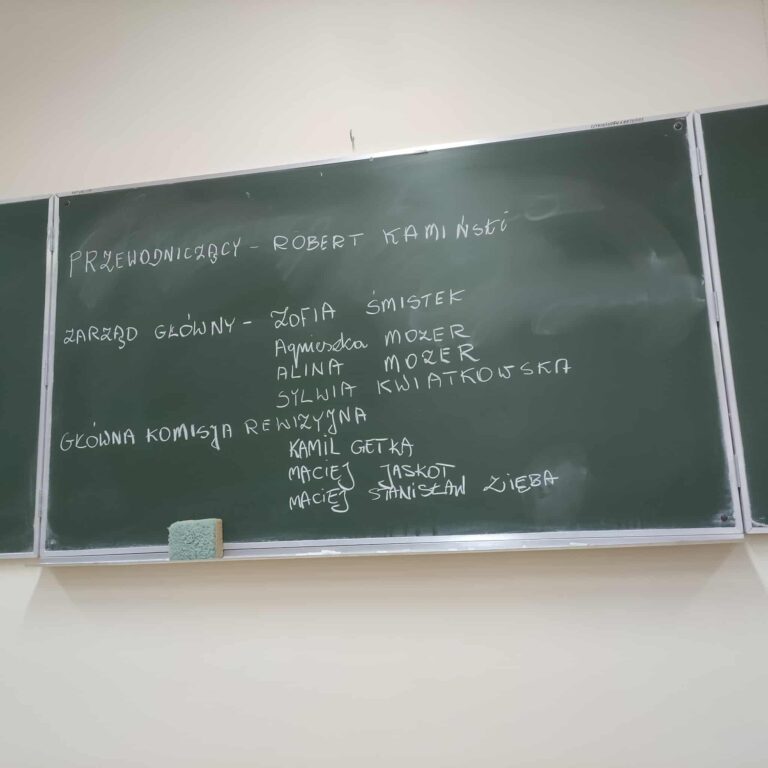 PRZEWODNICZĄCY - ROBERT KAMIŃSKI
ZARZĄD GŁÓWNY - ZOFIA ŚMISTEK
Agnieszka MOZER
ALINA MOZER
SYLWIA KWIATKOWSKA
GŁÓWNA KOMISJA REWIZYJNA
KAMIL GETKA
MACIEJ JASKOT
MACIEJ STANISŁAW ZIĘBA